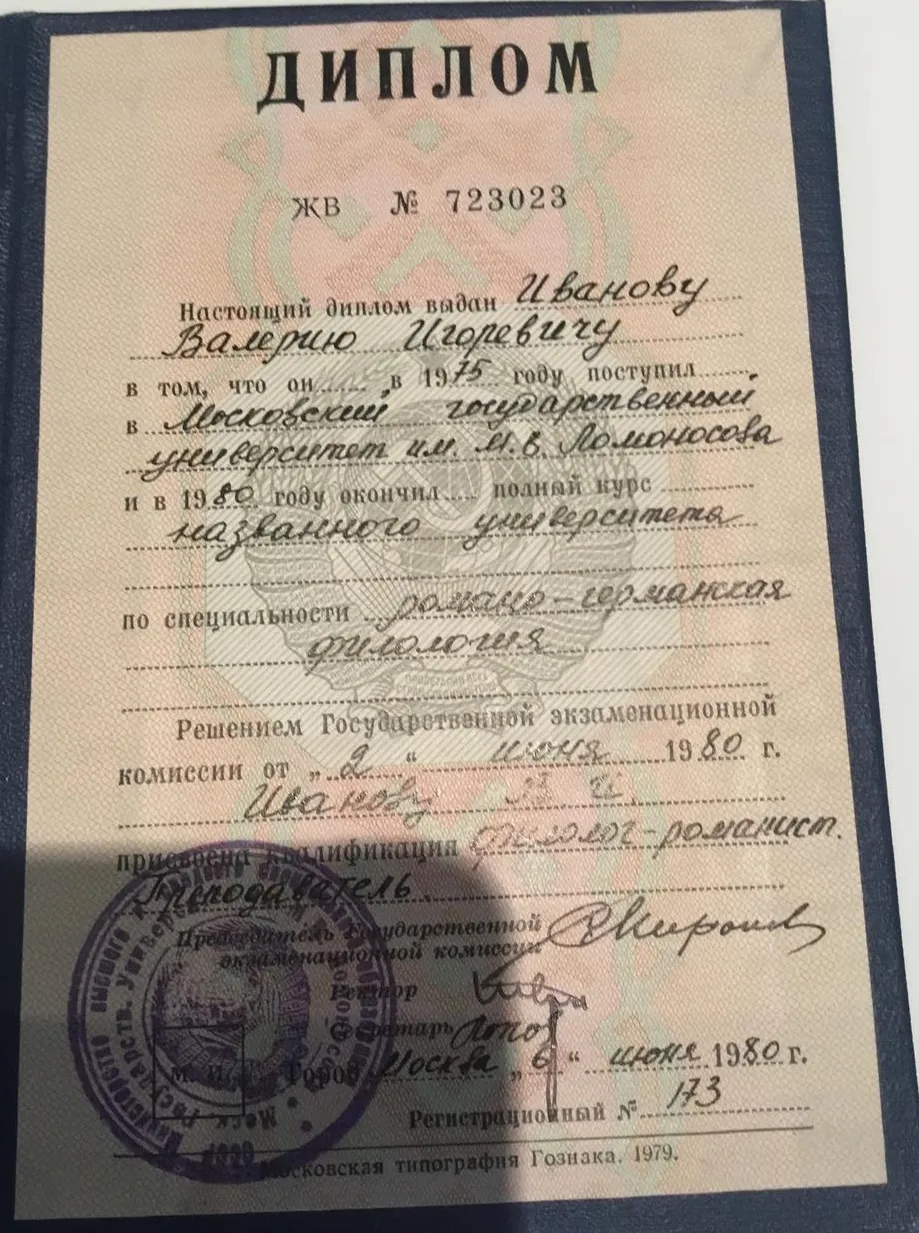 ДИПЛОМ
ЖВ № 723023
Настоящий диплом выдан Иванову
Валерию Игоревичу
в том, что он в 1975 году поступил
в Московский государственный
университет им. М.В. Ломоносова
и в 1980 году окончил полный курс
названного университета
по специальности романо-германская
филология
Решением Государственной экзаменационной
комиссии от „2“ июня 1980 г.
Иванову В. И.
присвоена квалификация филолог-романист.
Преподаватель.
Председатель Государственной
экзаменационной комиссии
Ректор
Секретарь
Город Москва „6“ июня 1980 г.
М. П.
Регистрационный № 173
Московская типография Гознака. 1979.